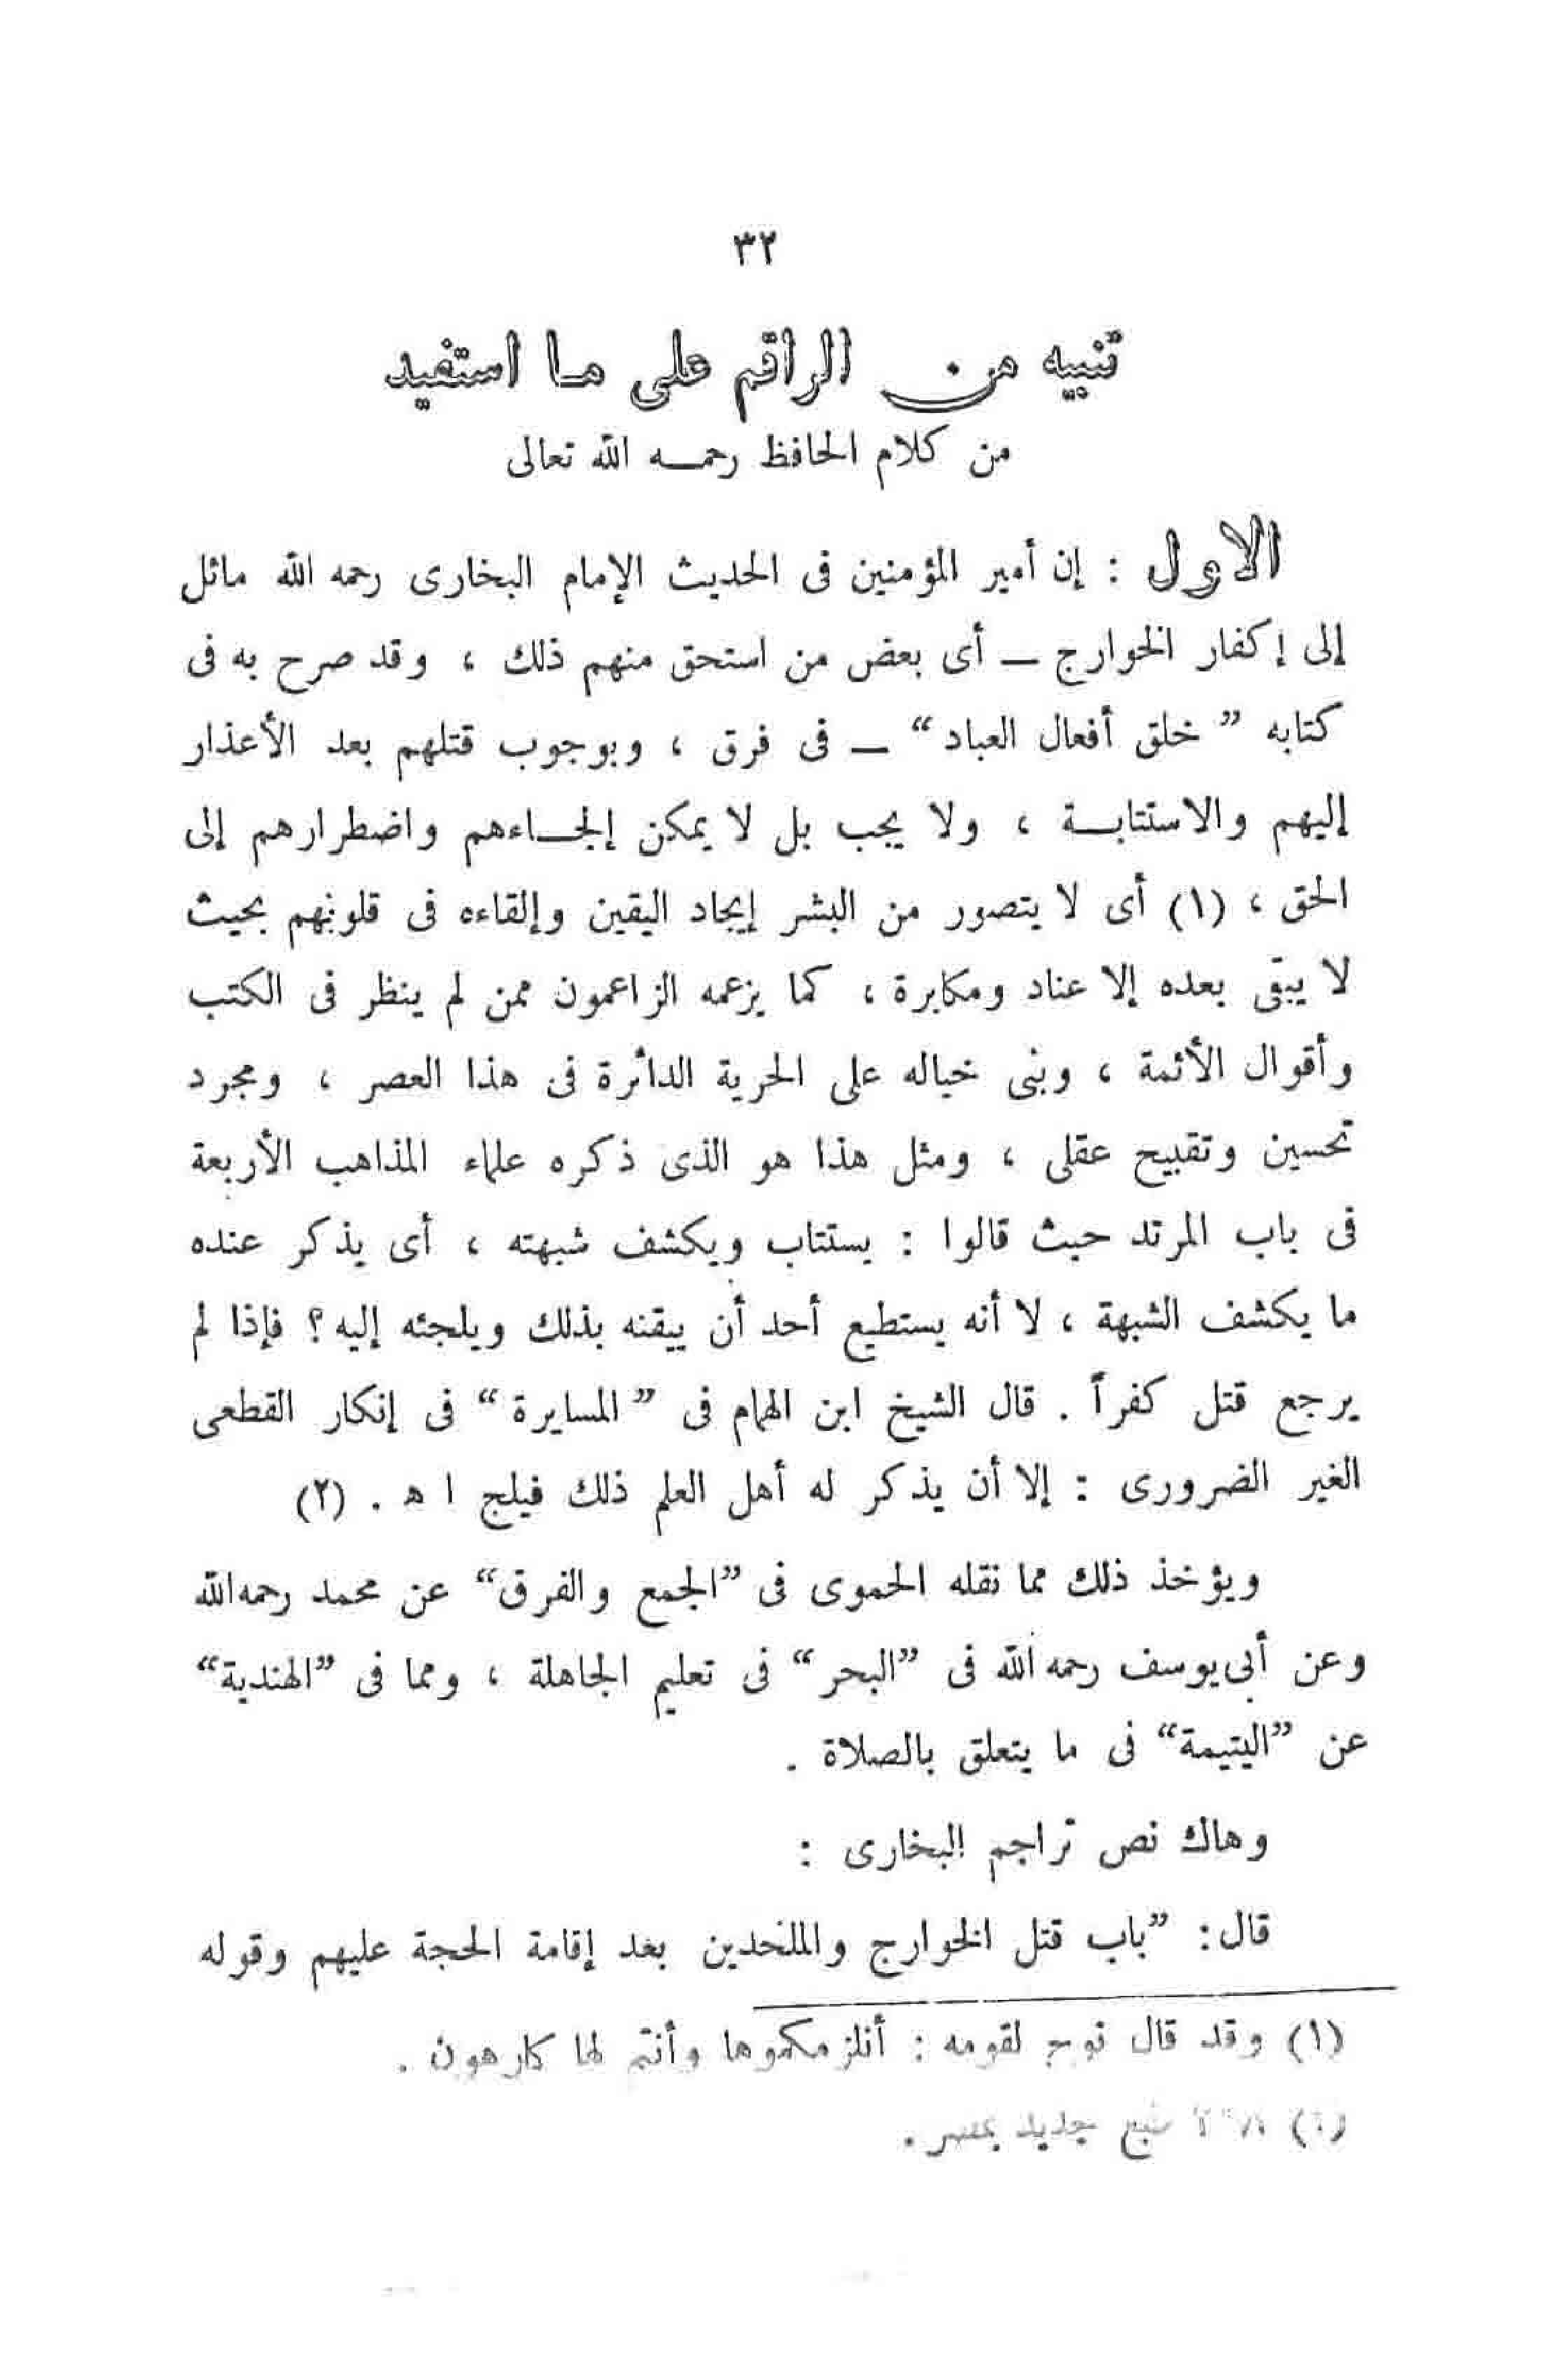 ٣٢
تنبيه من الراقم على ما استفيد
من كلام الحافظ رحمه الله تعالى
الاول : إن أمير المؤمنين فى الحديث الإمام البخارى رحمه الله مائل
إلى إكفار الخوارج – أى بعض من استحق منهم ذلك ، وقد صرح به فى
كتابه ” خلق أفعال العباد “ – فى فرق ، وبوجوب قتلهم بعد الأعذار
إليهم والاستتابة ، ولا يجب بل لا يمكن إلجاءهم واضطرارهم إلى
الحق ، (١) أى لا يتصور من البشر إيجاد اليقين وإلقاءه فى قلوبهم بحيث
لا يبقى بعده إلا عناد ومكابرة ، كما يزعمه الزاعمون ممن لم ينظر فى الكتب
وأقوال الأئمة ، وبنى خياله على الحرية الدائرة فى هذا العصر ، ومجرد
تحسين وتقبيح عقلى ، ومثل هذا هو الذى ذكره علماء المذاهب الأربعة
فى باب المرتد حيث قالوا : يستتاب ويكشف شبهته ، أى يذكر عنده
ما يكشف الشبهة ، لا أنه يستطيع أحد أن ييقنه بذلك ويلجئه إليه ؟ فإذا لم
يرجع قتل كفراً . قال الشيخ ابن الهمام فى ” المسايرة “ فى إنكار القطعى
الغير الضرورى : إلا أن يذكر له أهل العلم ذلك فيلج ا ه . (٢)
ويؤخذ ذلك مما نقله الحموى فى ”الجمع والفرق“ عن محمد رحمه الله
وعن أبى يوسف رحمه الله فى ”البحر“ فى تعليم الجاهلة ، ومما فى ”الهندية“
عن ”اليتيمة“ فى ما يتعلق بالصلاة .
وهاك نص تراجم البخارى :
قال : ”باب قتل الخوارج والملحدين بعد إقامة الحجة عليهم وقوله
(١) وقد قال نوح لقومه : أنلزمكموها وأنتم لها كارهون .
طبع جديد بمصر .